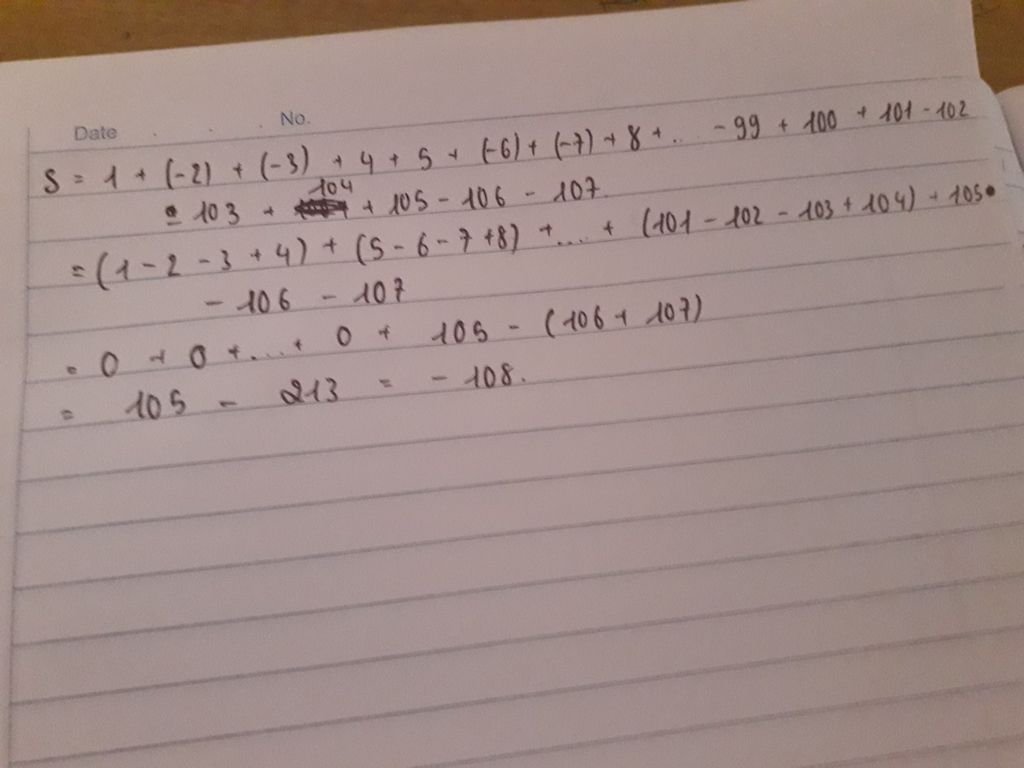 Date . . . No.
S = 1 + (-2) + (-3) + 4 + 5 + (-6) + (-7) + 8 + .. - 99 + 100 + 101 - 102
- 103 + 104 + 105 - 106 - 107
= (1 - 2 - 3 + 4) + (5 - 6 - 7 + 8) + .... + (101 - 102 - 103 + 104) + 105
- 106 - 107
= 0 + 0 + .... + 0 + 105 - (106 + 107)
= 105 - 213 = - 108.